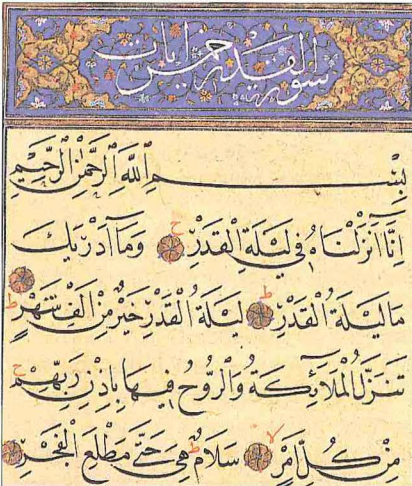 سورة القدر خمس ايات
بِسْمِ اللَّهِ الرَّحْمَٰنِ الرَّحِيمِ
اِنَّا اَنْزَلْنَاهُ فِي لَيْلَةِ الْقَدْرِ ح وَمَا اَدْرٰيكَ
مَا لَيْلَةُ الْقَدْرِ ط لَيْلَةُ الْقَدْرِ خَيْرٌ مِنْ اَلْفِ شَهْرٍ ط
تَنَزَّلُ الْمَلَآئِكَةُ وَالرُّوحُ فِيهَا بِاِذْنِ رَبِّهِمْ ح
مِنْ كُلِّ اَمْرٍ لا سَلَامٌ ط هِيَ حَتَّى مَطْلَعِ الْفَجْرِ